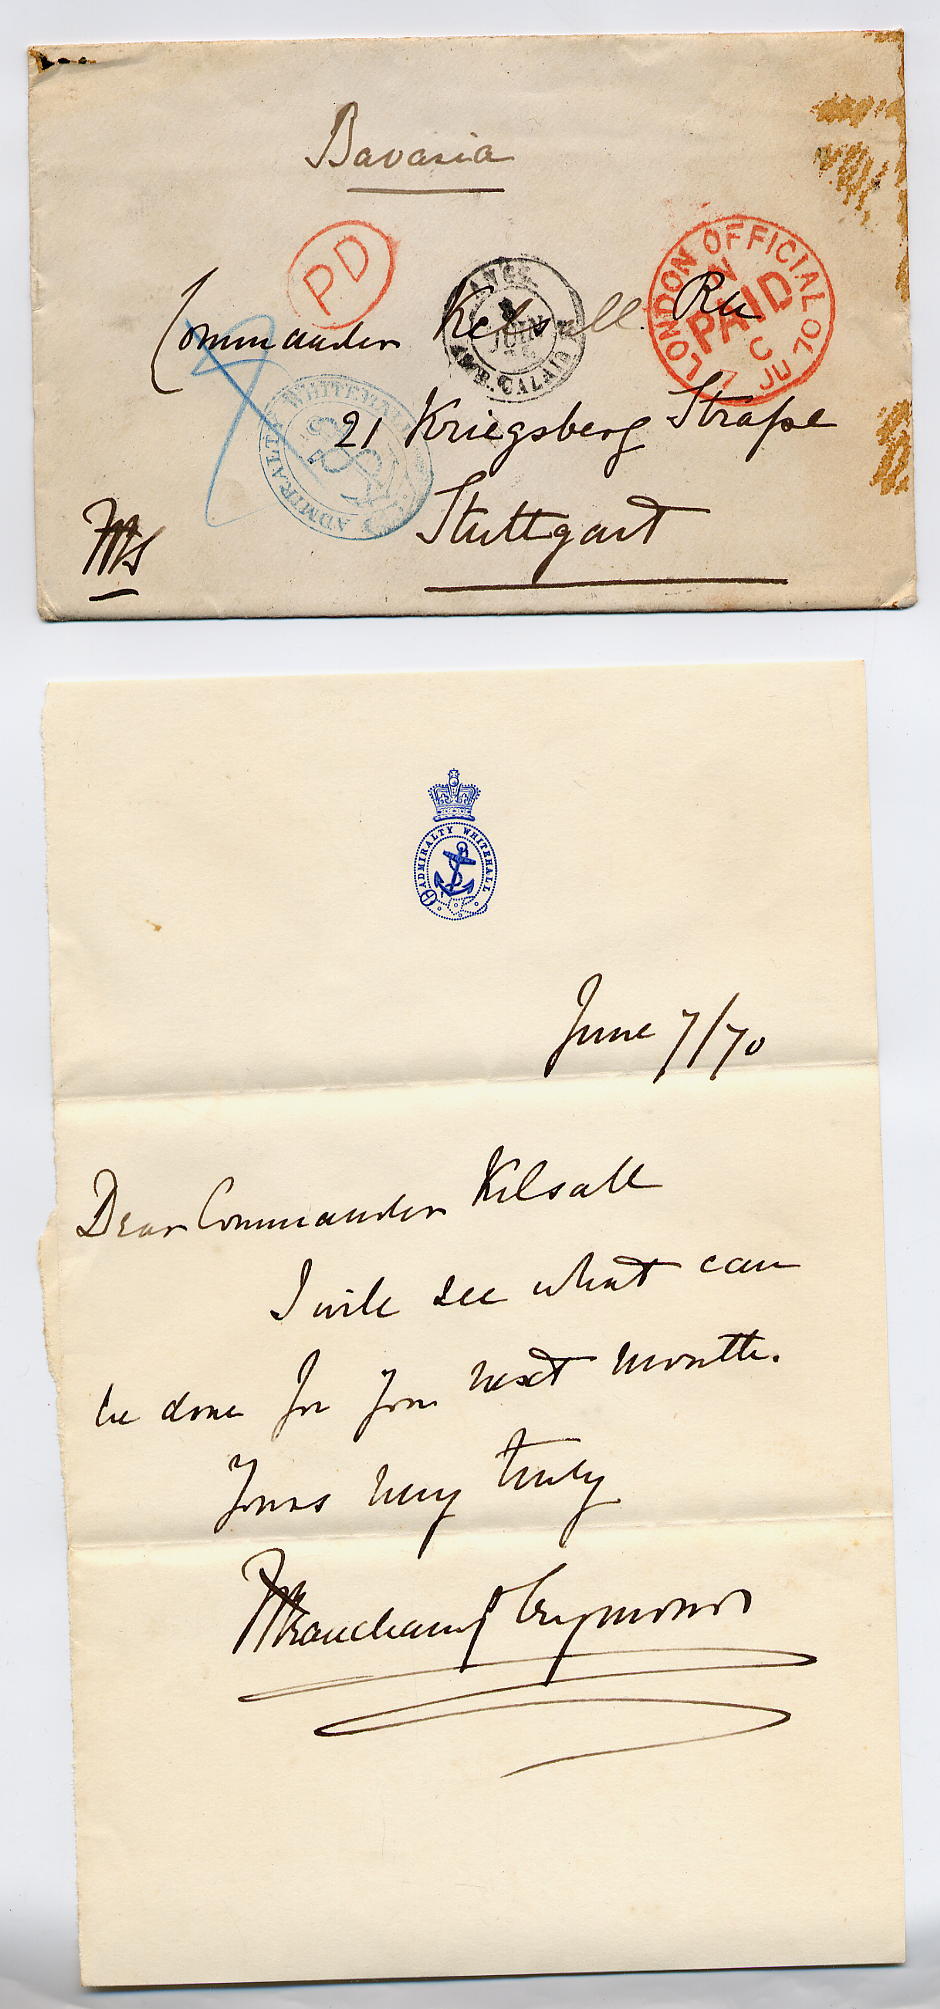 Bavaria
PD
LONDON OFFICIAL
PAID
C
7 JU 70
ANGL.
8
JUIN
AMB. CALAIS
Commander Kelsall RN
ADMIRALTY WHITEHALL
21 Kriegsberg Straße
Stuttgart
ADMIRALTY WHITEHALL
June 7/70
Dear Commander Kelsall
I will see what can
be done for you next month.
Yours very truly
Beauchamp Seymour